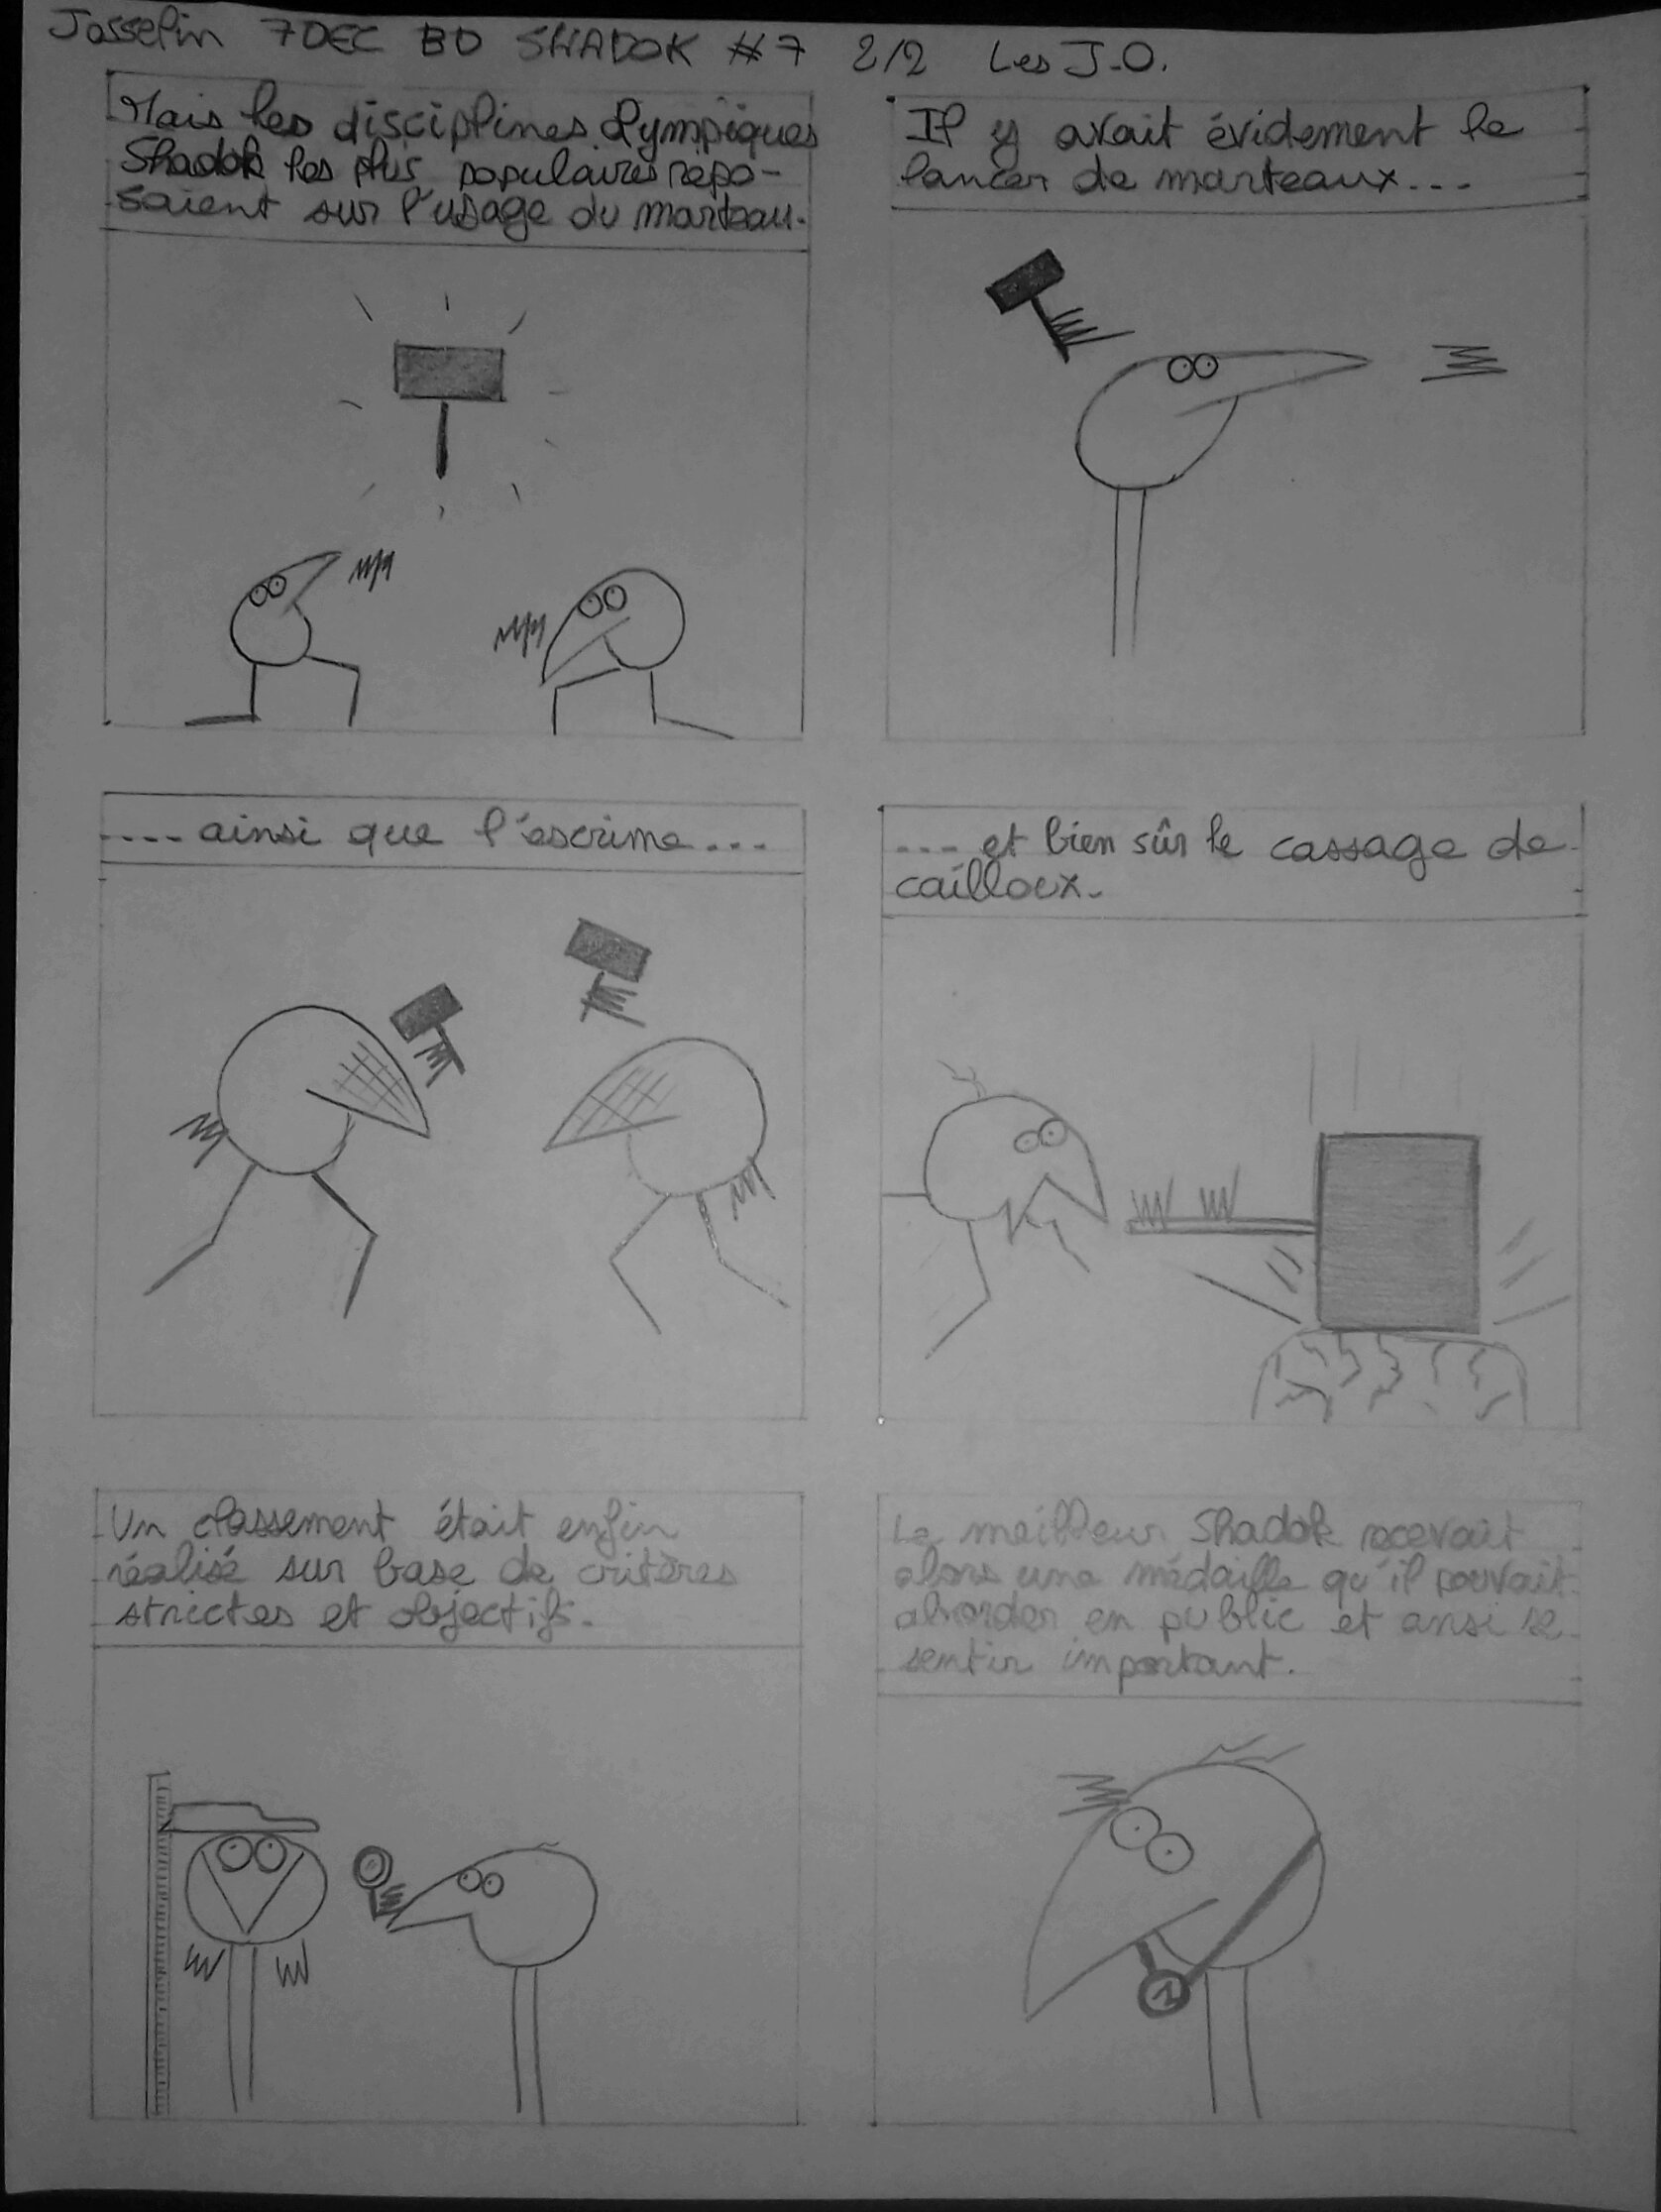 Josselin 7DEC BD SHADOK #7 2/2 Les J.O.
Mais les disciplines Olympiques
Shadok les plus populaires repo-
saient sur l'usage du marteau.
Il y avait évidement le
lancer de marteaux...
.... ainsi que l'escrime...
... et bien sûr le cassage de
cailloux.
Un classement était enfin
réalisé sur base de critères
strictes et objectifs.
Le meilleur Shadok recevait
alors une médaille qu'il pouvait
aborder en public et ansi se
sentir important.
1